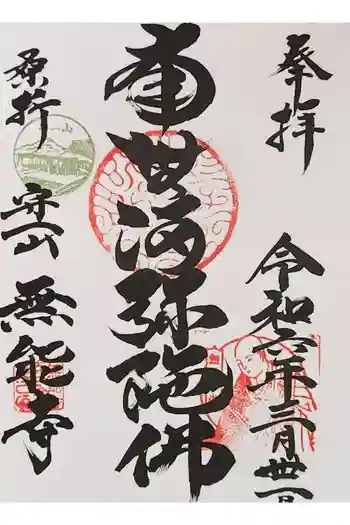 奉拝
令和六年三月卅一日
南無阿弥陀佛
桑折
守一山
無能寺